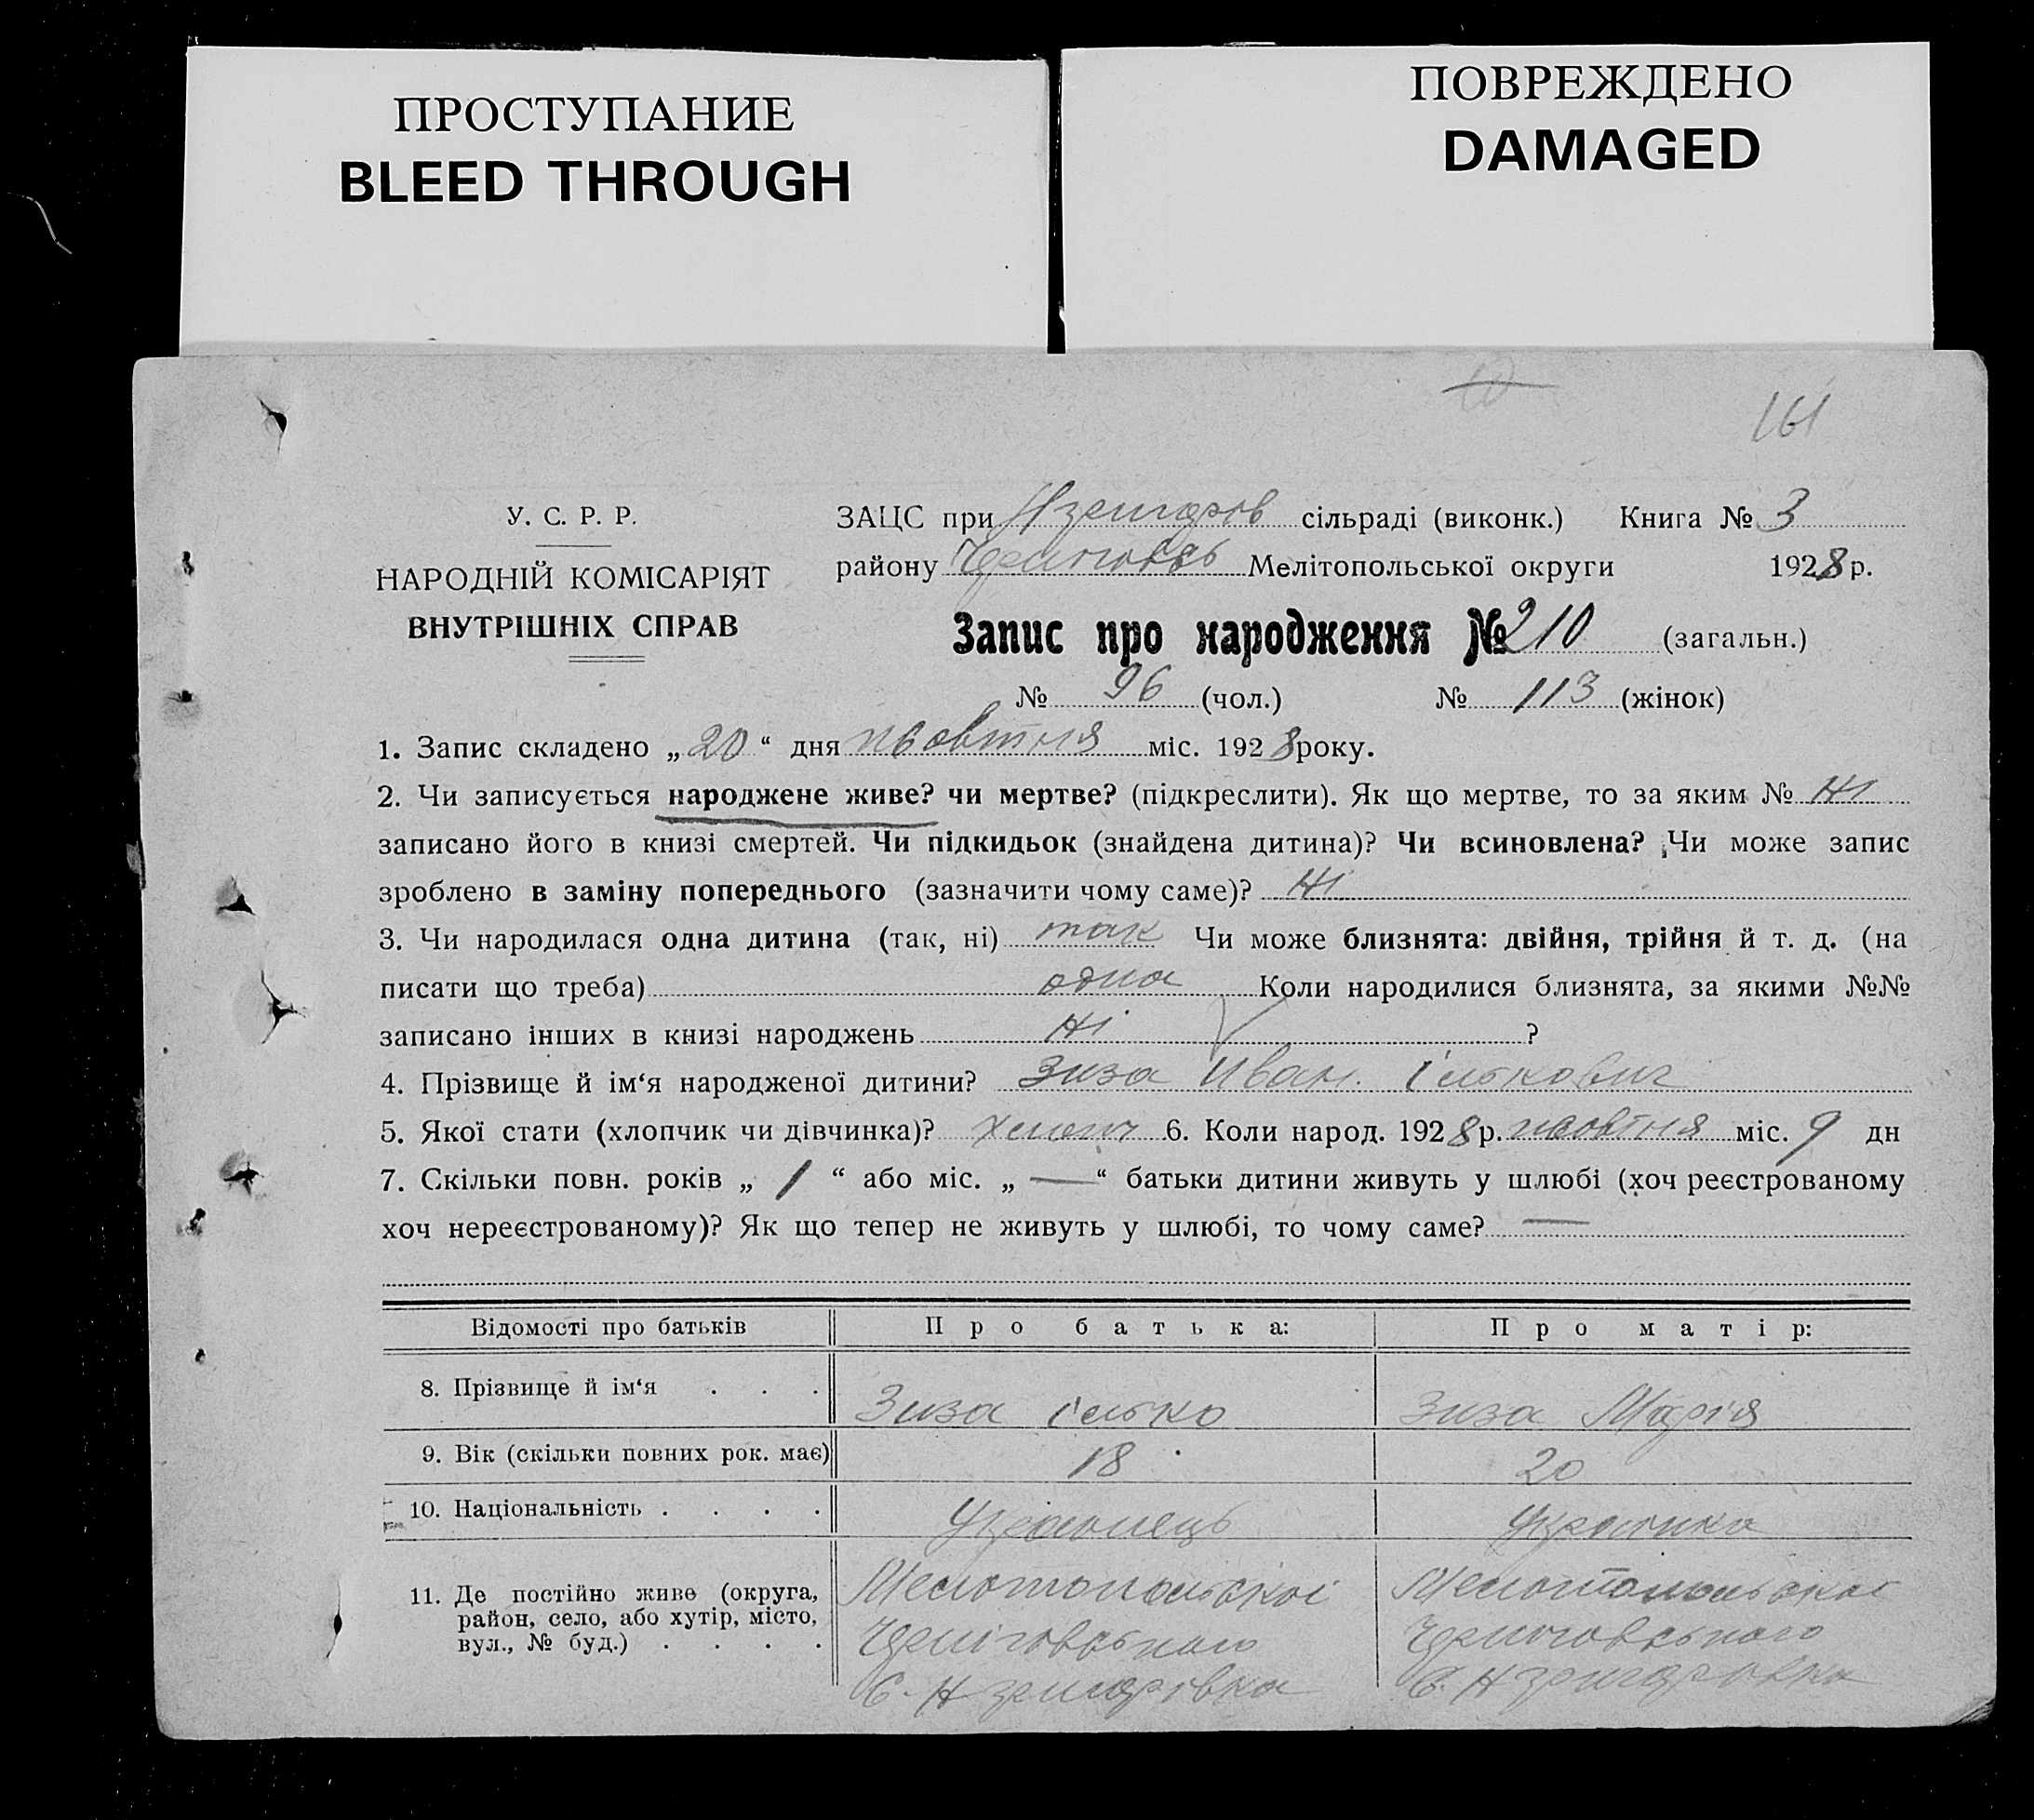 ПРОСТУПАНИЕ
BLEED THROUGH
ПОВРЕЖДЕНО
DAMAGED
161
У. С. Р. Р.
НАРОДНІЙ КОМІСАРІЯТ
ВНУТРІШНІХ СПРАВ
ЗАЦС при Нзригорів сільраді (виконк.) Книга № 3
району Черніговськ Мелітопольської округи 1928 р.
Запис про народження № 210 (загальн.)
№ 96 (чол.) № 113 (жінок)
1. Запис складено „ 20 “ дня жовтня міс. 1928 року.
2. Чи записується народжене живе? чи мертве? (підкреслити). Як що мертве, то за яким № Ні
записано його в книзі смертей. Чи підкидьок (знайдена дитина)? Чи всиновлена? Чи може запис
зроблено в заміну попереднього (зазначити чому саме)? Ні
3. Чи народилася одна дитина (так, ні) так Чи може близнята: двійня, трійня й т. д. (на
писати що треба) одна Коли народилися близнята, за якими №№
записано інших в книзі народжень Ні ?
4. Прізвище й ім‘я народженої дитини? Зиза Иван. Ількович
5. Якої стати (хлопчик чи дівчинка)? Хлопч 6. Коли народ. 1928 р. жовтня міс. 9 дн
7. Скільки повн. років „ 1 “ або міс. „ — “ батьки дитини живуть у шлюбі (хоч реєстрованому
хоч нереєстрованому)? Як що тепер не живуть у шлюбі, то чому саме? —
Відомості про батьків Про батька: Про матір:
8. Прізвище й ім‘я . . . Зиза Ілько Зиза Марія
9. Вік (скільки повних рок. має) 18 20
10. Національність . . . . Українець Українка
11. Де постійно живе (округа, Мелітопольскої Мелітопольскої
район, село, або хутір, місто, Черніговського Черниговського
вул., № буд.) . . . . С. Нзригорівка С. Нзригоровка